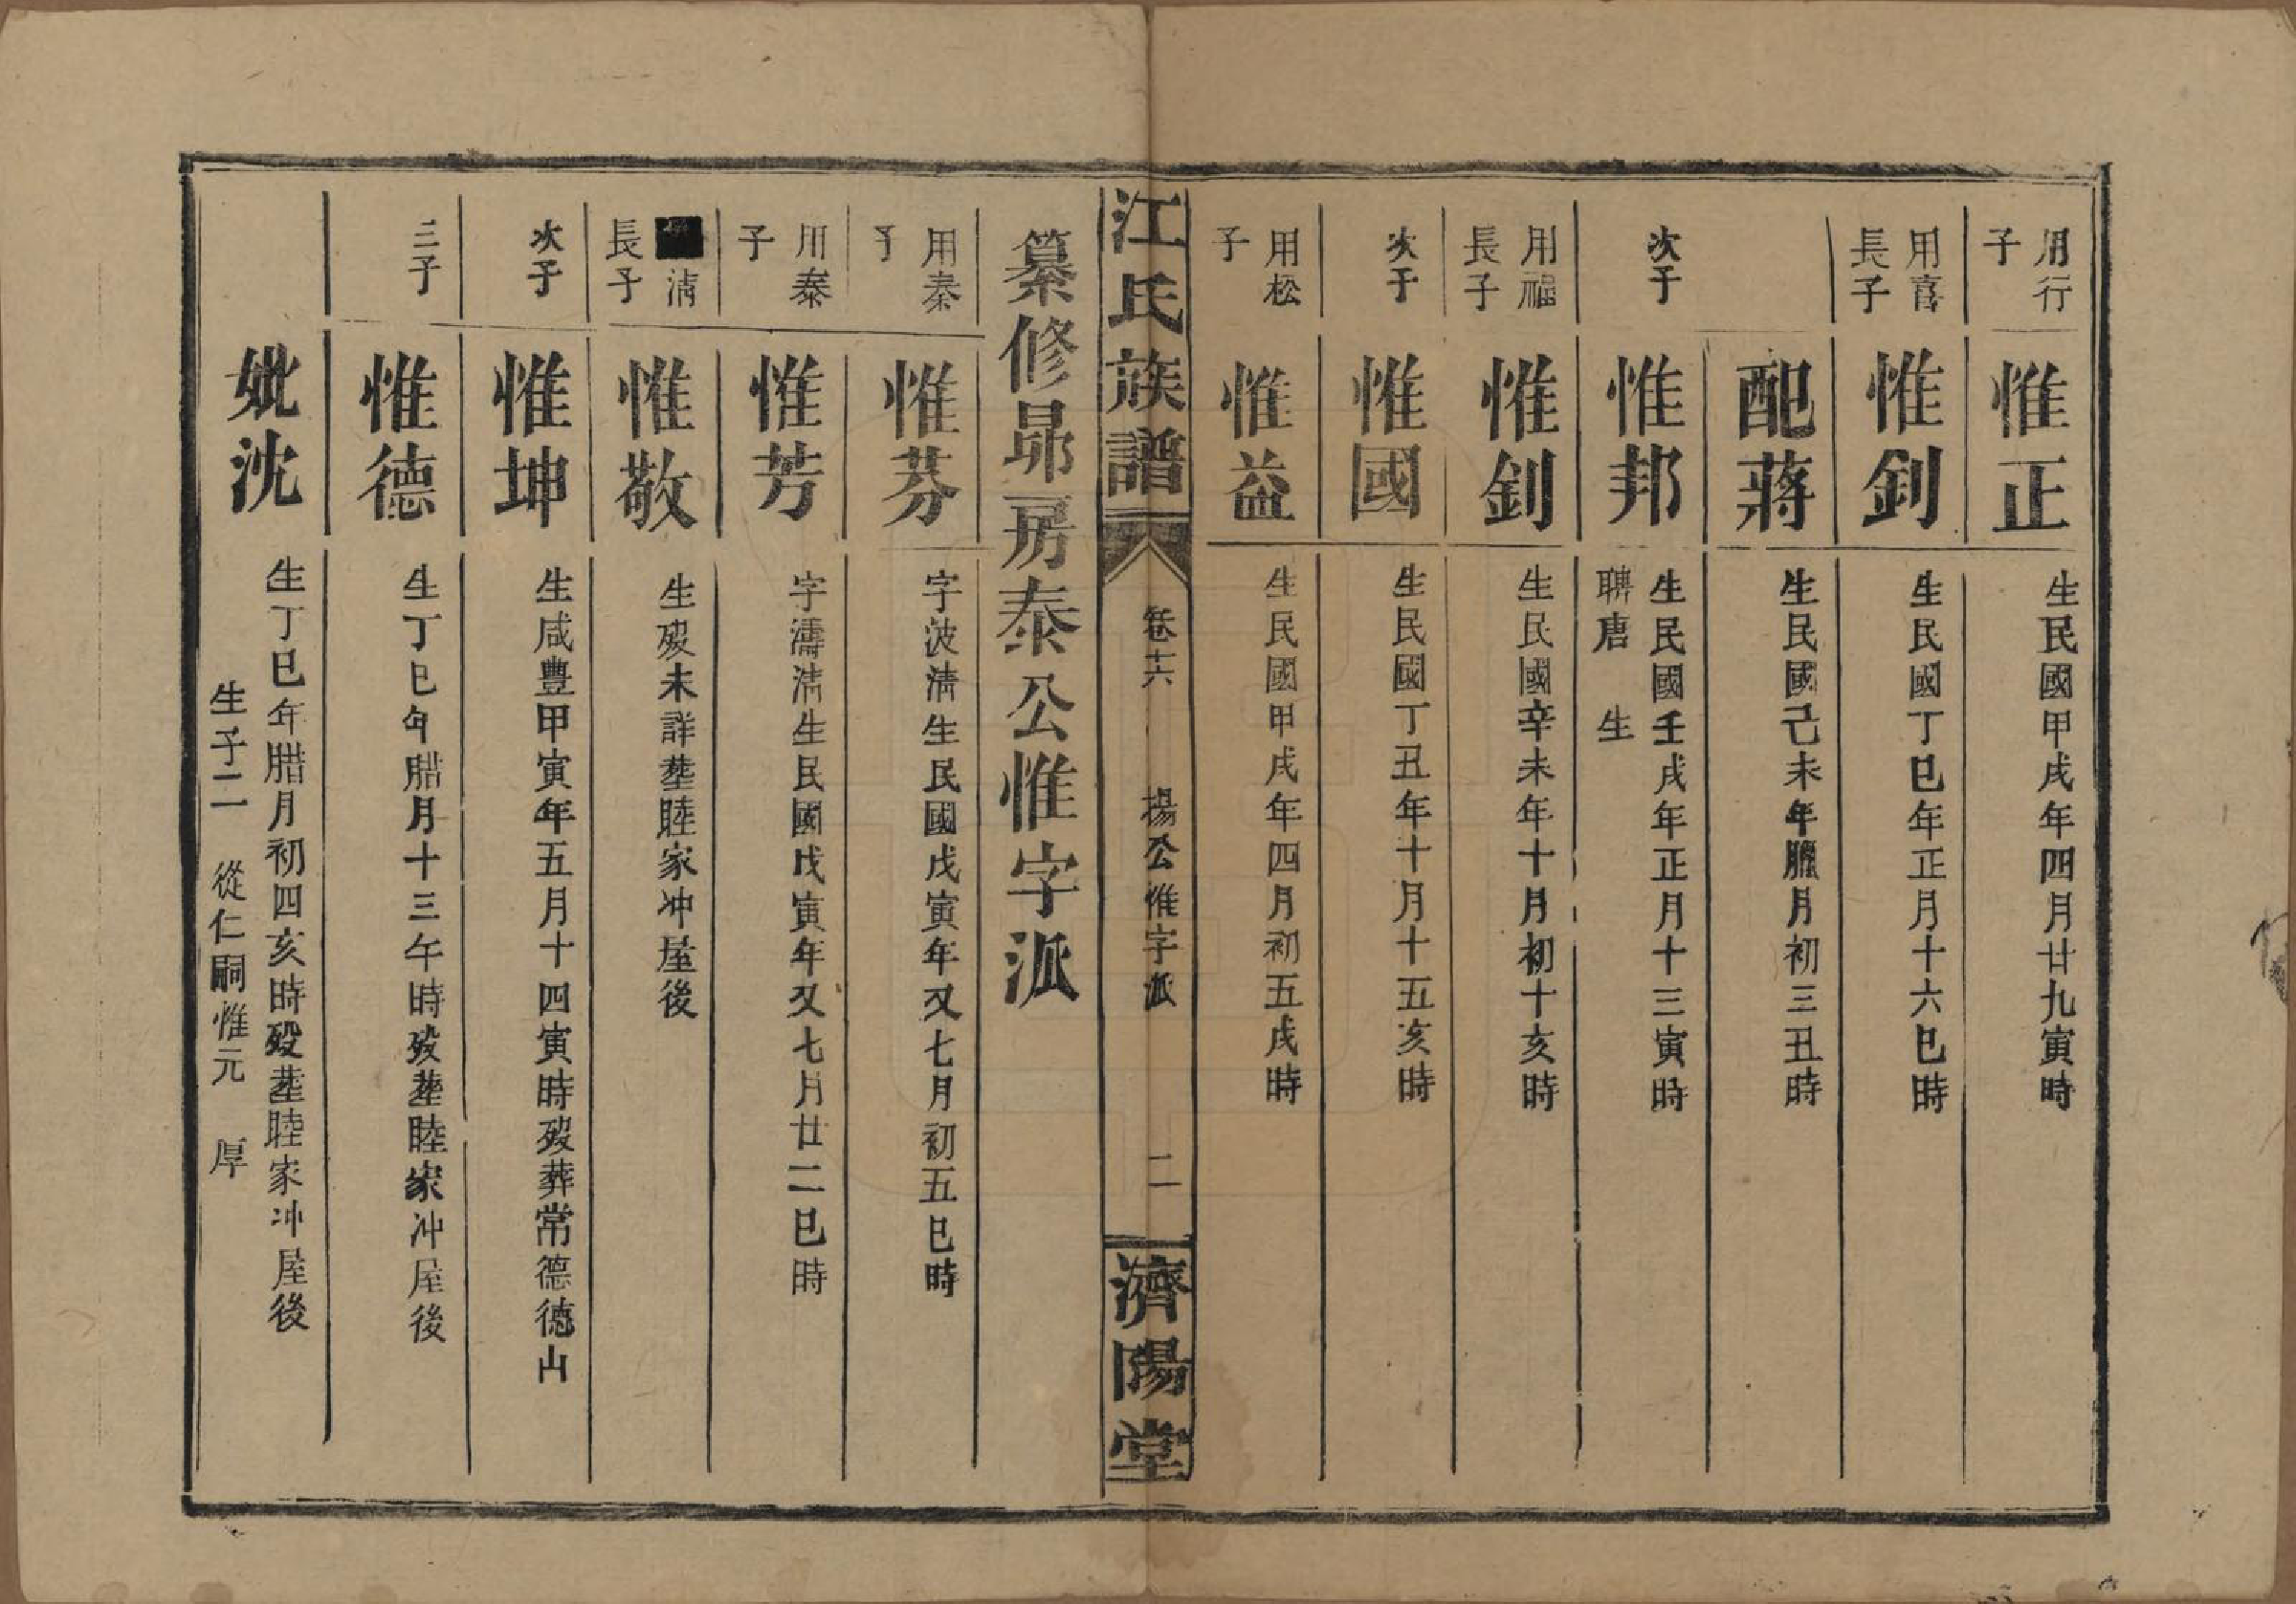 用行
子
惟正
生民國甲戌年四月廿九寅時
用喜
長子
惟釗
生民國丁巳年正月十六巳時
配蔣
生民國己未年臘月初三丑時
次子
惟邦
生民國壬戌年正月十三寅時
聘唐　生
用福
長子
惟釗
生民國辛未年十月初十亥時
次子
惟國
生民國丁丑年十月十五亥時
用松
子
惟益
生民國甲戌年四月初五戌時
江氏族譜
卷十六
揚公惟字派
二
濟陽堂
纂修昴房泰公惟字派
用秦
子
惟芬
字波清生民國戊寅年又七月初五巳時
用泰
子
惟芳
字濤清生民國戊寅年又七月廿二巳時
清
長子
惟敬
生歿未詳塟睦家冲屋後
次子
惟坤
生咸豐甲寅年五月十四寅時歿葬常德德山
三子
惟德
生丁巳年腊月十三午時歿塟睦家冲屋後
妣沈
生丁巳年腊月初四亥時歿塟睦家冲屋後
生子二　從仁嗣惟元　厚